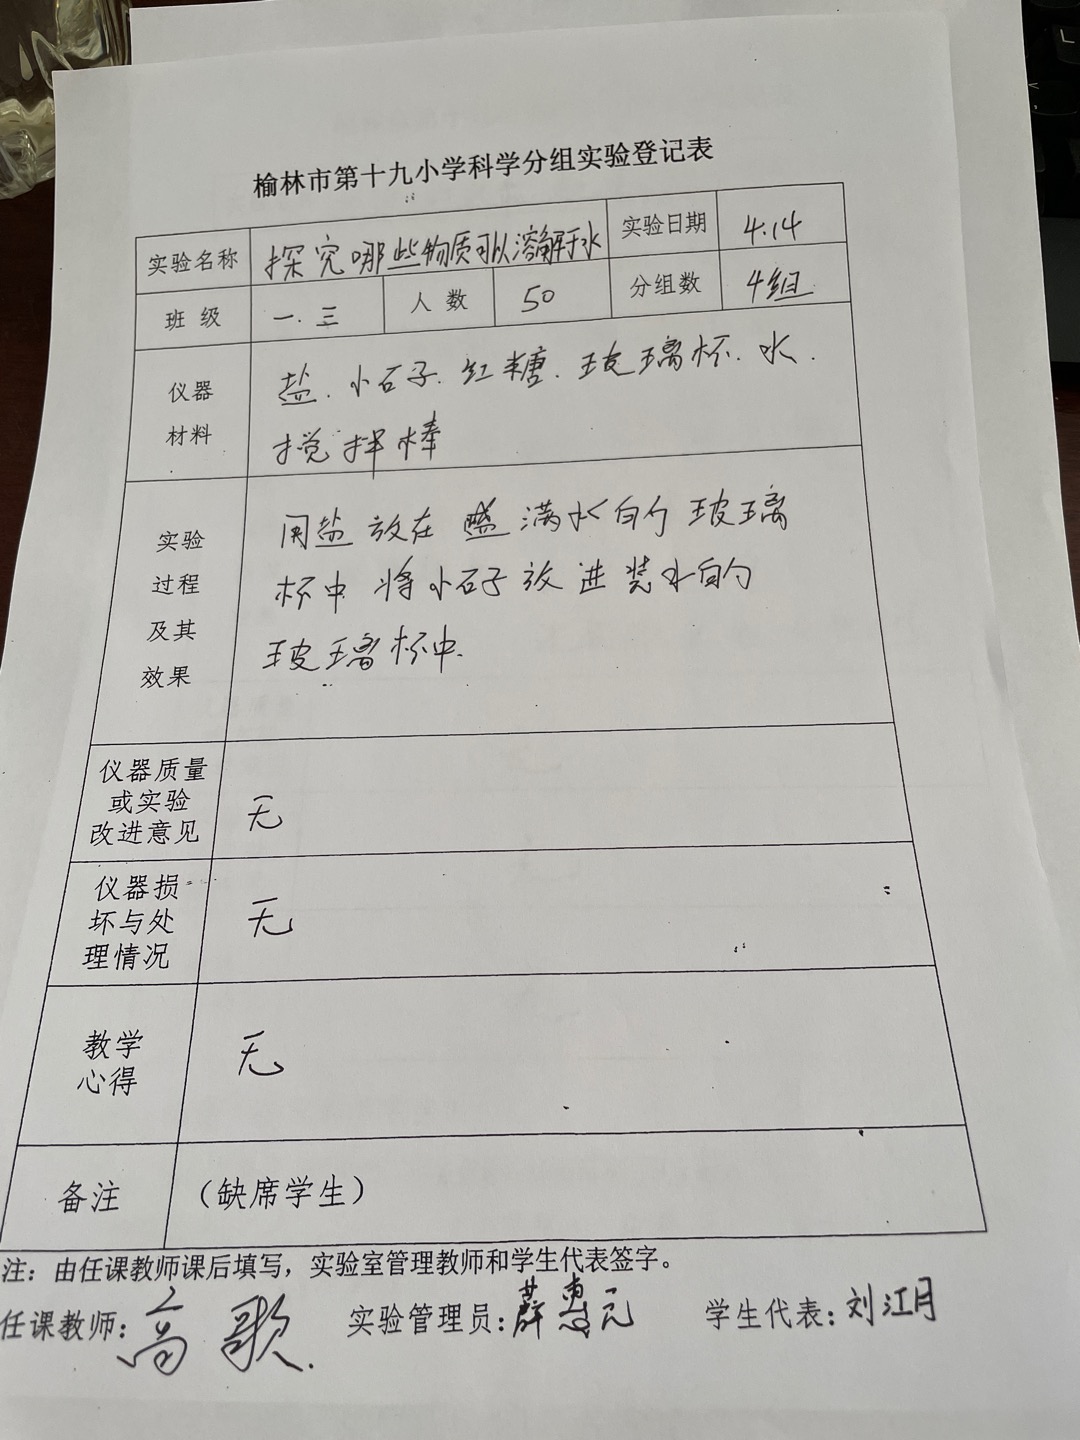 榆林市第十九小学科学分组实验登记表
实验名称 探究哪些物质可以溶解于水 实验日期 4.14
班级 一.三 人数 50 分组数 4组
仪器
材料
盐.小石子.红糖.玻璃杯.水.
搅拌棒
实验
过程
及其
效果
用盐放在盛满水的玻璃
杯中将小石子放进装水的
玻璃杯中.
仪器质量
或实验
改进意见
无
仪器损
坏与处
理情况
无
教学
心得
无
备注 （缺席学生）
注：由任课教师课后填写，实验室管理教师和学生代表签字。
任课教师：高歌. 实验管理员：薛惠元 学生代表：刘江月